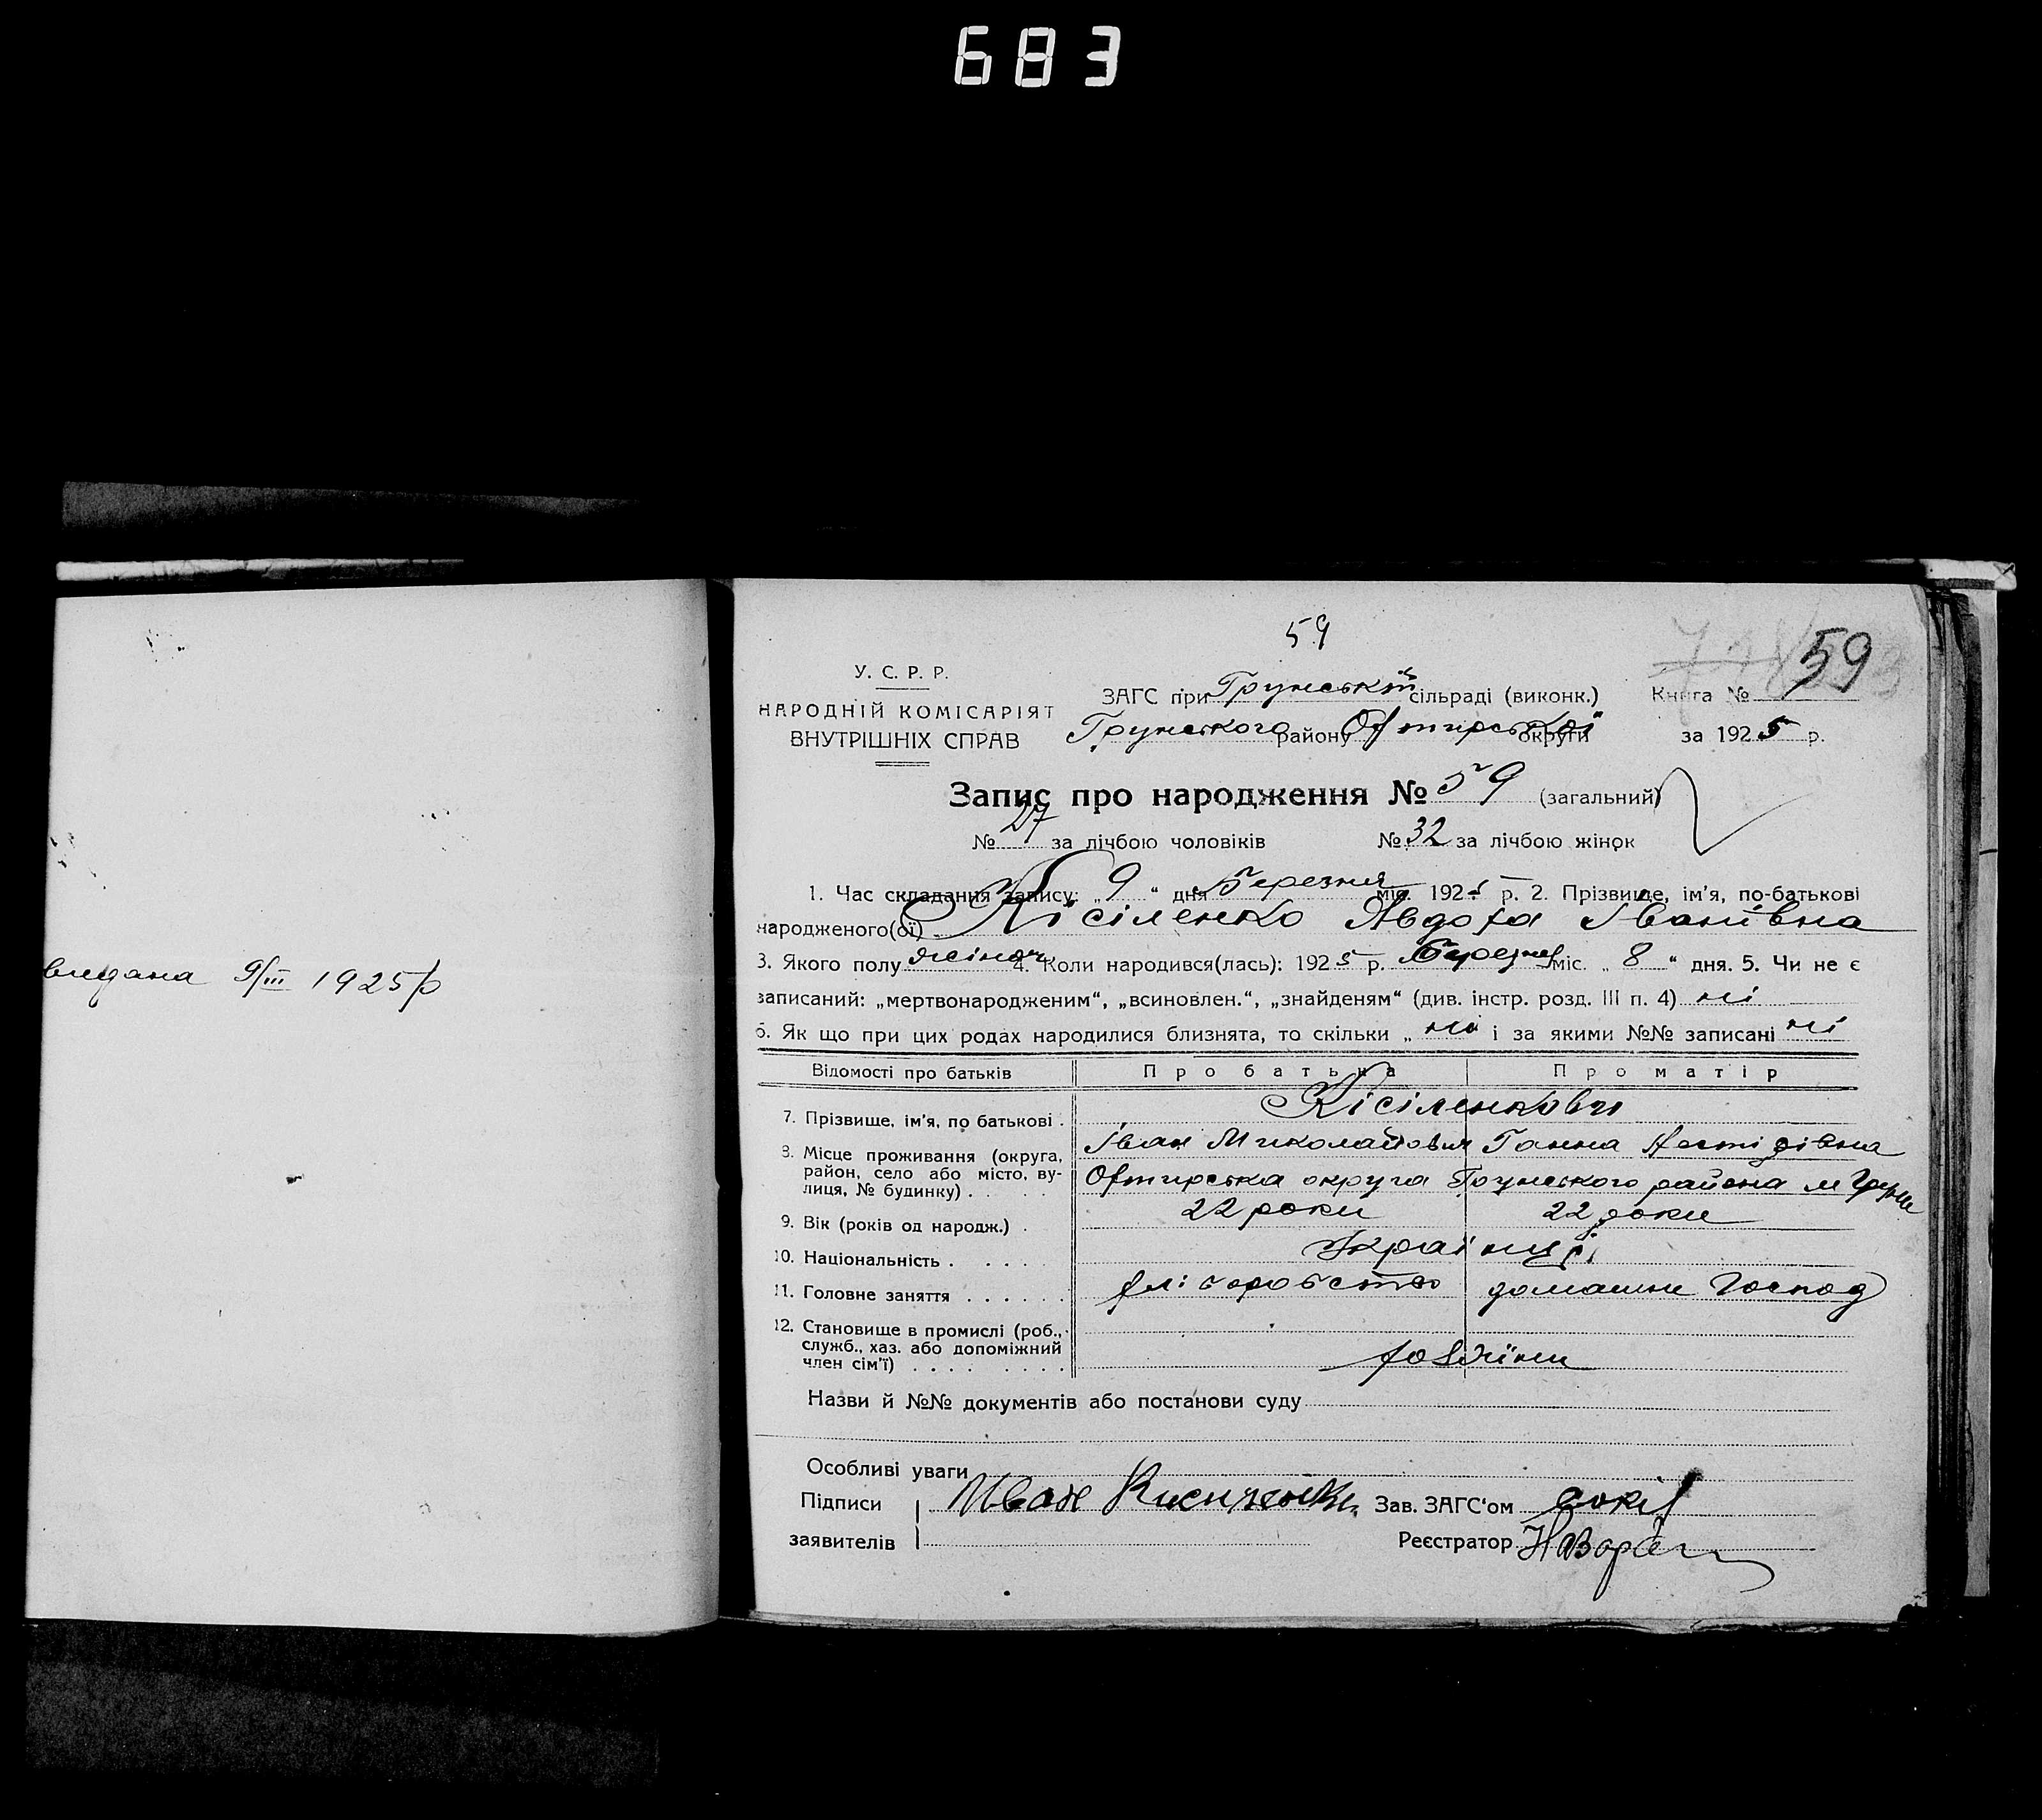 683
59
59
У. С. Р. Р.
НАРОДНІЙ КОМІСАРІЯТ
ВНУТРІШНІХ СПРАВ
ЗАГС при Грунській сільраді (виконк.)
Книга №
Грунського району Охтирської округи
за 1925 р.
Запис про народження № 59 (загальний)
№ 27 за лічбою чоловіків № 32 за лічбою жінок
1. Час складання запису: „ 9 “ дня Березня міс. 1925 р. 2. Прізвище, ім'я, по-батькові
народженого(ої) Кісіленко Явдоха Іванівна
3. Якого полу жіноч. 4. Коли народився(лась): 1925 р. Березня міс. „ 8 “ дня. 5. Чи не є
записаний: „мертвонародженим“, „всиновлен.“, „знайденям“ (див. інстр. розд. III п. 4) ні
6. Як що при цих родах народилися близнята, то скільки „ ні і за якими №№ записані ні
Відомості про батьків Про батька Про матір
7. Прізвище, ім'я, по батькові . Кісіленкови
Іван Миколайович Ганна
8. Місце проживання (округа, район, село або місто, вулиця, № будинку) . Охтирська округа Грунського района м Грунь
9. Вік (років од народж.) . 22 роки 22 роки
10. Національність . . . . Українці
11. Головне заняття . . . . . . хліборобство домашне Господ
12. Становище в промислі (роб., служб., хаз. або допоміжний член сім'ї) . . . . хозяіни
Назви й №№ документів або постанови суду
Особливі уваги
Підписи заявителів Иван Кисиленко
Зав. ЗАГС'ом
Реєстратор
видана 9/III 1925 р